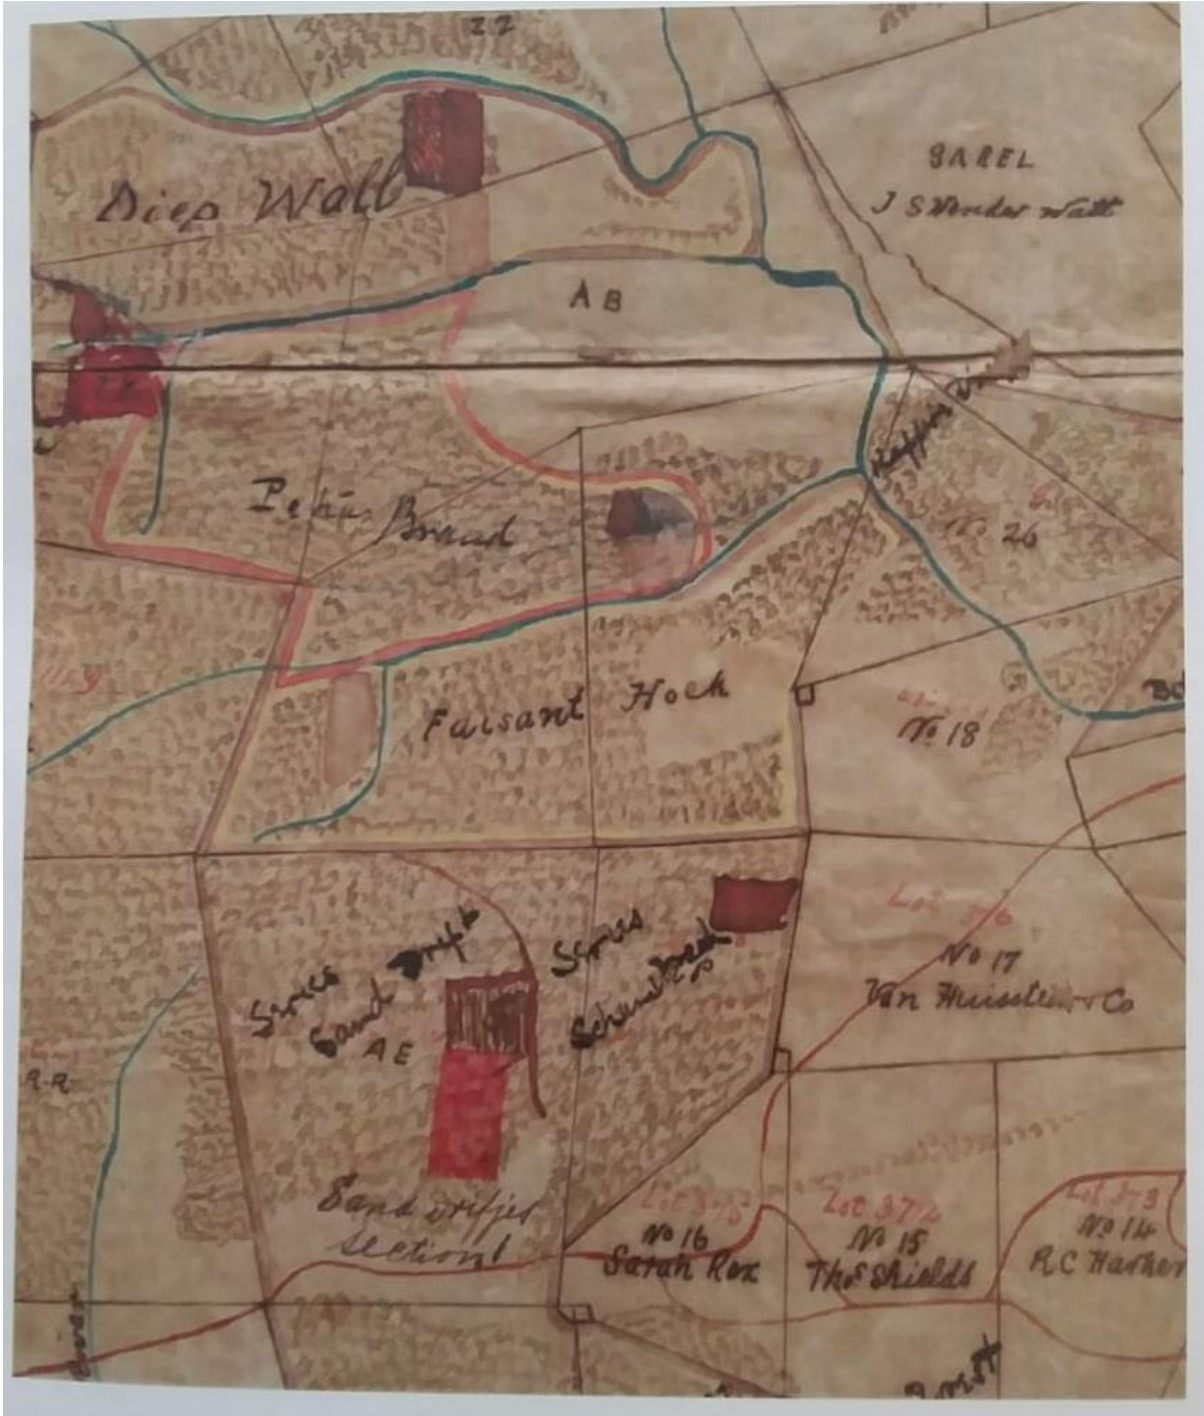 22
Diep Wall
SAREL
J S Vander Watt
A B
Petrus Brand
No 26
Faisant Hoek
No 18
Series
Sand Drift
A E
Series
Lot 376
No 17
Van Huissteen & Co
R.R
Sand Driftjes
Section 1
Lot 375
No 16
Sarah Rex
Lot 374
No 15
Thos Shields
Lot 373
No 14
R C Harker
River